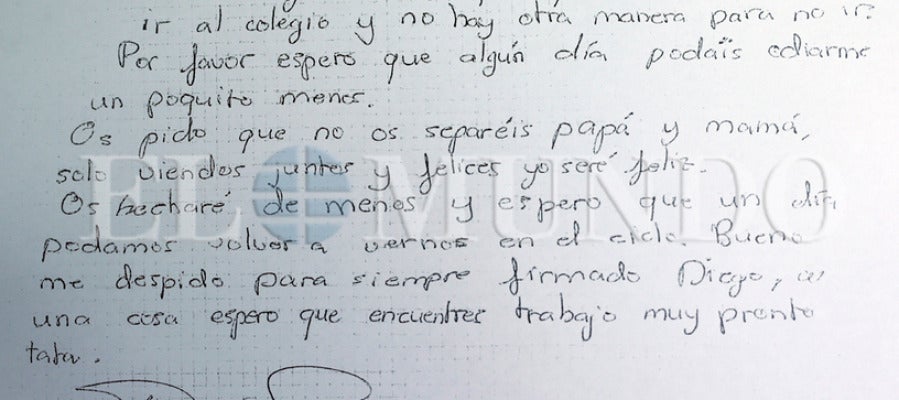 ir al colegio y no hay otra manera para no ir.
Por favor espero que algún día podáis odiarme
un poquito menos.
Os pido que no os separéis papá y mamá,
solo viendos juntos y felices yo seré feliz.
Os hecharé de menos y espero que un día
podamos volver a vernos en el cielo. Bueno
me despido para siempre firmado Diego, a
una cosa espero que encuentres trabajo muy pronto
tata.
EL MUNDO